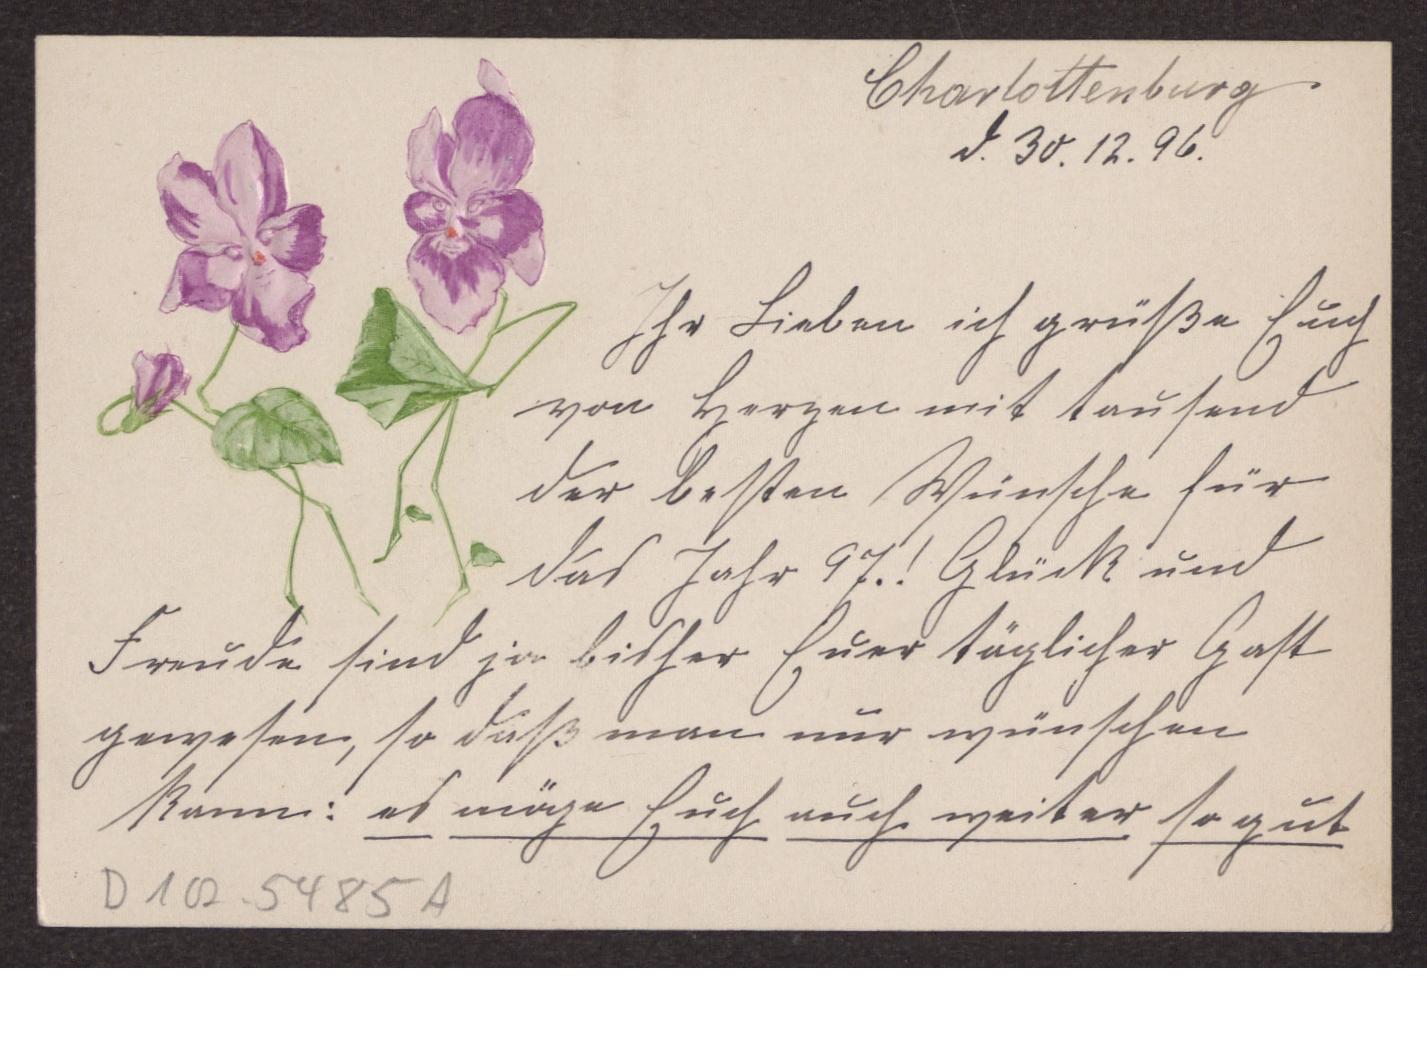 Charlottenburg
d. 30. 12. 96.
Ihr Lieben ich grüße Euch
von Herzen mit tausend
der besten Wünsche für
das Jahr 97.! Glück und
Freude sind ja bisher Euer täglicher Gast
gewesen, so daß man nur wünschen
kann: es möge Euch auch weiter so gut
D 102.5485 A